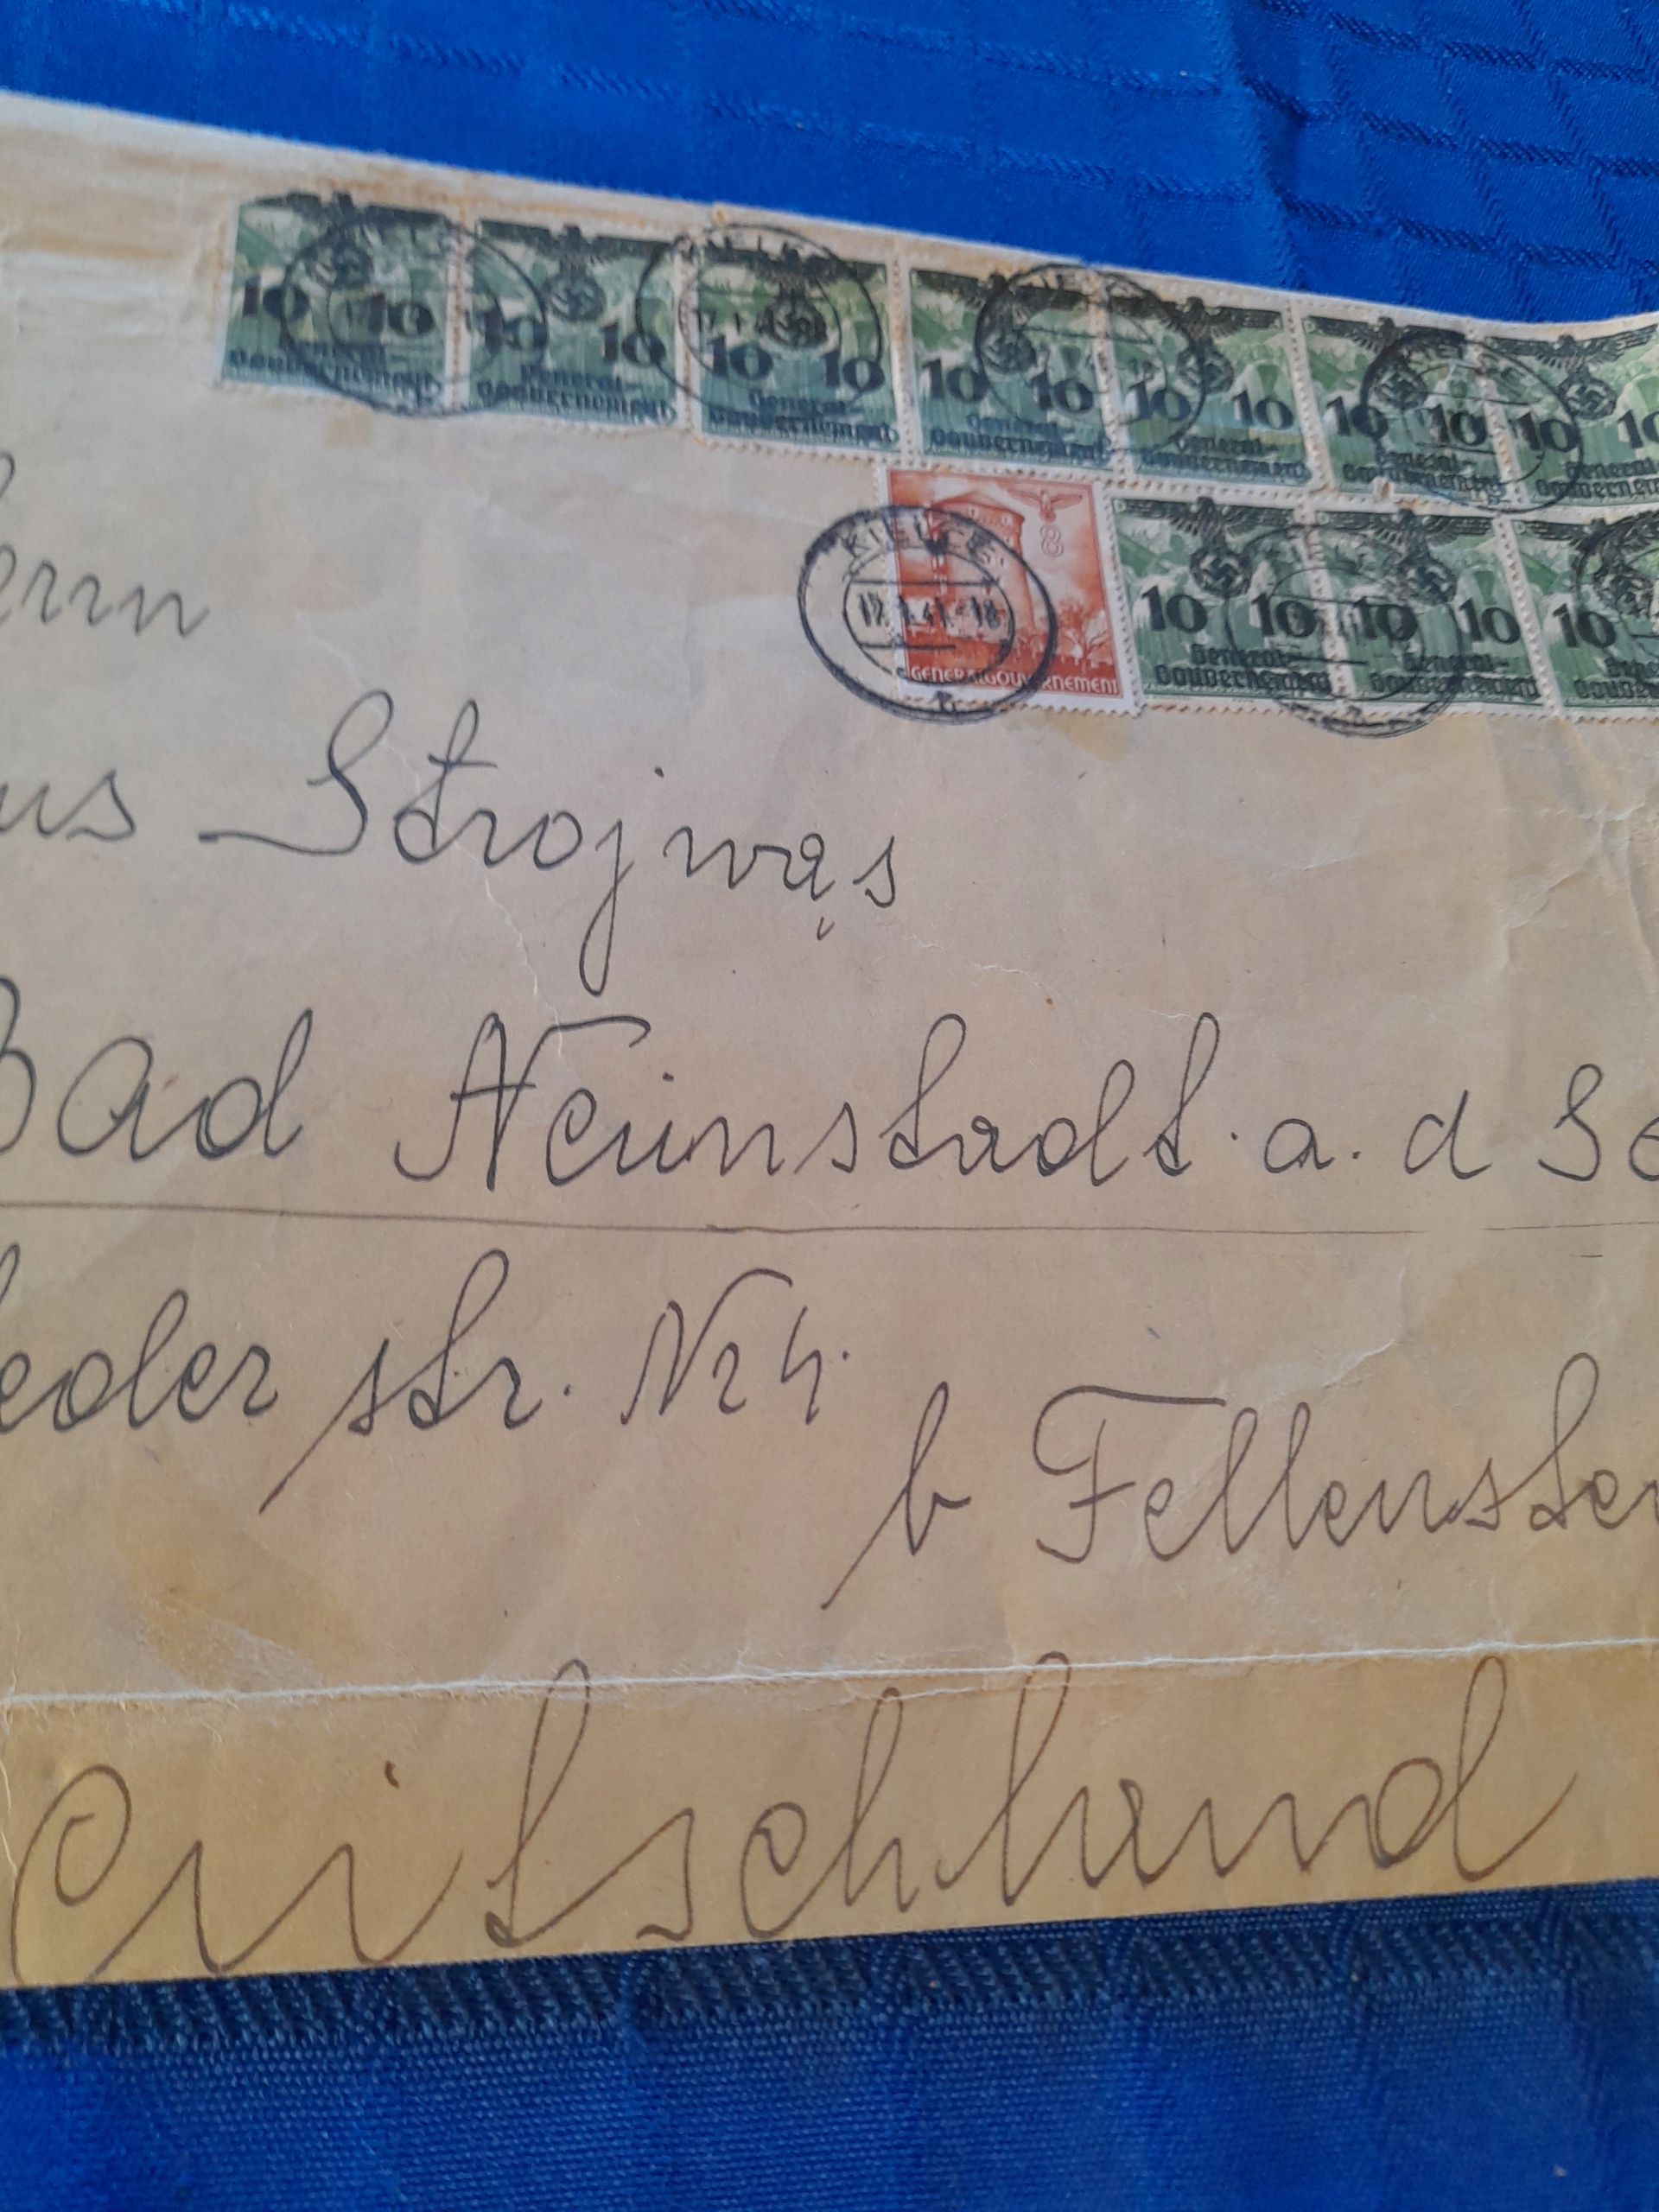 10 10 10 10 10 10 10 10 10 10 10 10 10 10
General- General- General- General- General- General- General-
Gouvernement Gouvernement Gouvernement Gouvernement Gouvernement Gouvernement Gouvernem
KIELCE
17.1.41.-18
a
8
GENERALGOUVERNEMENT
10 10 10 10 10
General- General- Gene
Gouvernement Gouvernement Gouvern
errn
us Strojwąs
Bad Neinstadt. a. d S
eder str. Nr 4.
b Fellenste
eutschland